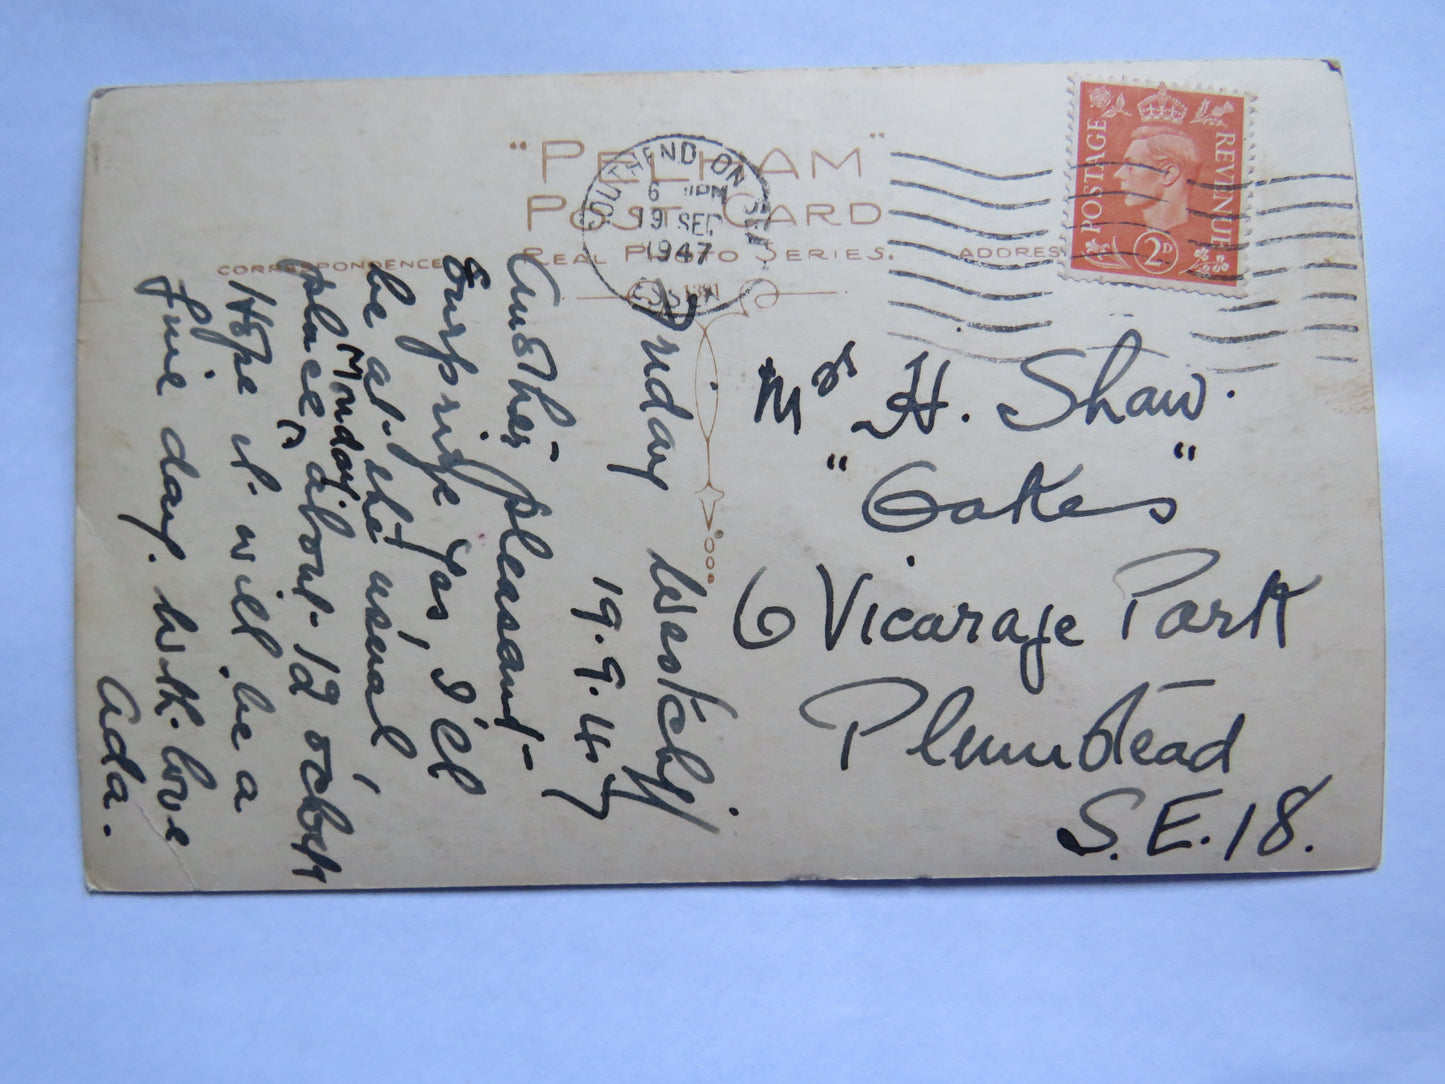 "PELHAM"
POST CARD
REAL PHOTO SERIES.
CORRESPONDENCE
ADDRESS
SOUTHEND ON SEA
6 PM
19 SEP
1947
ESSEX
POSTAGE REVENUE
2D
Friday Westcliff
19.9.47
Another pleasant
surprise Yes, I'll
be at the usual
Monday
place ^ about 12 o'clock
Hope it will be a
fine day. With love
Ada.
Mrs H. Shaw.
"Oakes"
6 Vicarage Park
Plumstead
S.E.18.